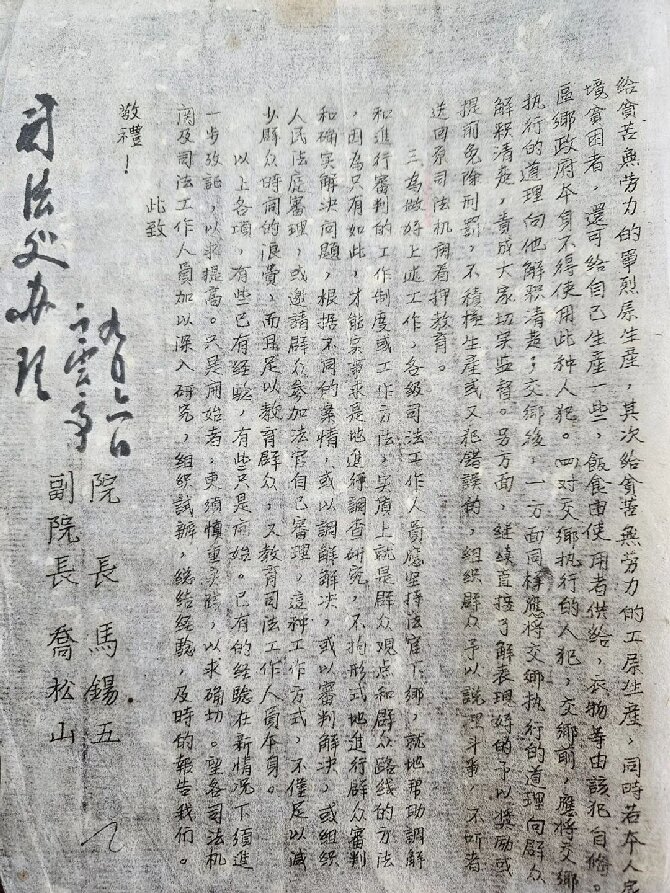 给貧苦無劳力的軍烈屬生産，其次给貧苦無劳力的工屬生産，同時若本人家
境貧困者，還可給自己生産一些，飯食由使用者供給，衣物等由該犯自俻
區鄉政府本身不得使用此种人犯。四对交鄉执行的人犯，交鄉前，應将交鄉
执行的道理向他解釈清楚；交鄉後，一方面同樣應将交鄉执行的道理向群众
解釈清楚，責成大家切实监督。另方面，继续直接了解表現好的予以奖励或
提前免除刑罰，不積極生産或又犯錯誤的，组织群众予以說理斗争，不听者
送回原司法机関看押教育。
三為做好上述工作，各級司法工作人員應坚持法官下鄉，就地帮助調解
和進行審判的工作制度或工作方法，实質上就是群众观点和群众路线的方法
，因為只有如此，才能实事求是地進行調查研究，不拘形式地進行群众審判
和确实解决问題，根据不同的案情，或以調解解决，或以審判解决，或组织
人民法庭審理，或邀請群众参加法官自己審理，這种工作方式，不僅足以减
少群众時间的浪費，而且足以教育群众，又教育司法工作人員本身。
以上各項，有些已有经驗，有些只是開始。已有的经驗在新情况下須進
一步攷証，以求提高。只是開始者，更須慎重实践，以求确切。望各司法机
関及司法工作人員加以深入研究，组织試辦，總結经驗，及時的報告我们。
此致
敬禮！
院長 馬錫五
副院長 喬松山
司法处